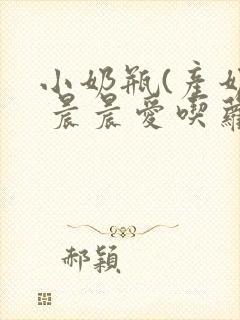 小奶瓶(産奶
晨晨愛喫蘿
郝穎